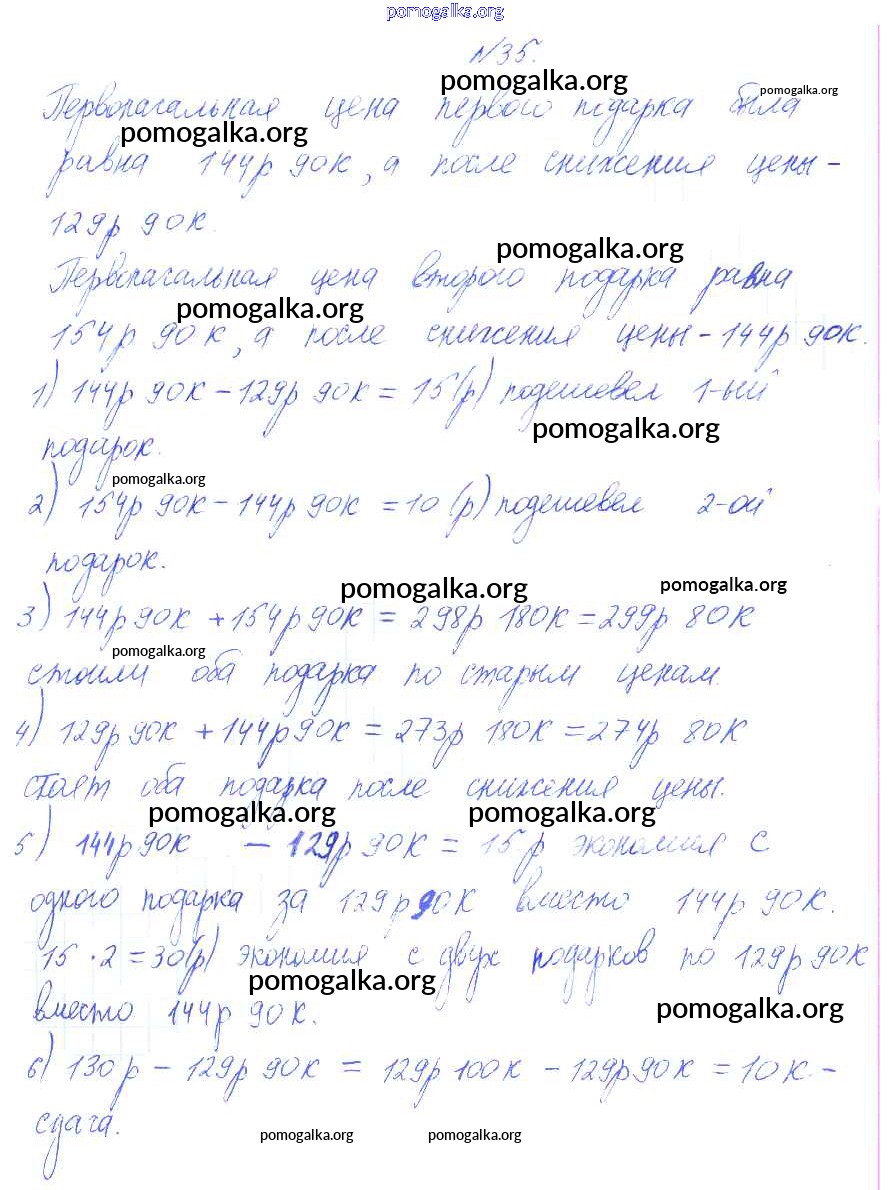 pomogalka.org
№35.
pomogalka.org
pomogalka.org
Первоначальная цена первого подарка была
pomogalka.org
равна 144р 90к, а после снижения цены -
129р 90к.
pomogalka.org
Первоначальная цена второго подарка равна
pomogalka.org
154р 90к, а после снижения цены - 144р 90к.
1) 144р 90к - 129р 90к = 15(р) подешевел 1-ый
pomogalka.org
подарок.
pomogalka.org
2) 154р 90к - 144р 90к = 10 (р) подешевел 2-ой
подарок.
pomogalka.org
pomogalka.org
3) 144р 90к + 154р 90к = 298р 180к = 299р 80к
pomogalka.org
стоили оба подарка по старым ценам.
4) 129р 90к + 144р 90к = 273р 180к = 274р 80к
стоят оба подарка после снижения цены.
pomogalka.org
pomogalka.org
5) 144р 90к - 129р 90к = 15р экономия с
одного подарка за 129р 90к вместо 144р 90к.
15 · 2 = 30(р) экономия с двух подарков по 129р 90к
pomogalka.org
вместо 144р 90к.
pomogalka.org
6) 130р - 129р 90к = 129р 100к - 129р 90к = 10к. -
сдача.
pomogalka.org
pomogalka.org